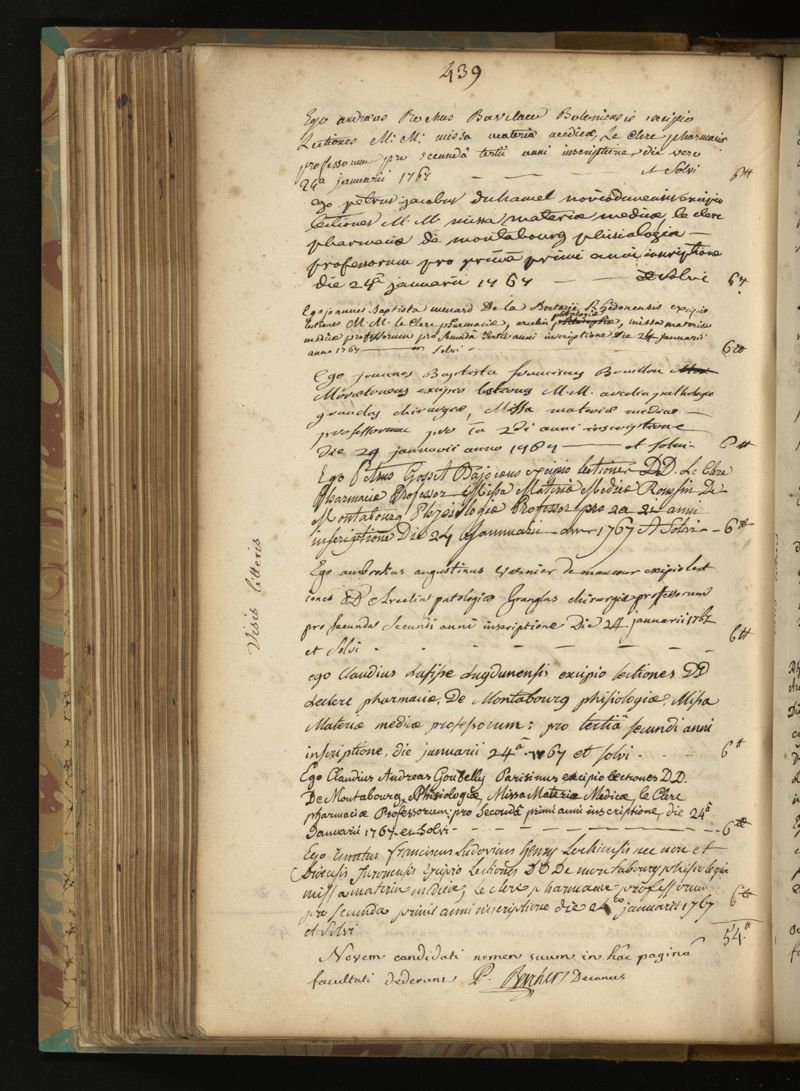 439
Ego andreas Rochus Bavelaer Boloniensis excipio
Lectiones M. M. missa materiæ medicæ, Le Clerc pharmaciæ
professorum pro secundâ tertii anni inscriptione, die vero
24a januarii 1767 — — — et Solvi 6tt
Ego petrus jacobus duhamel noviodunensis excipio
lectiones M. M. missa, materiæ medicæ, le clerc
pharmaciæ de montabourg phisiologia —
professorum pro primâ primi anni inscriptione
die 24a januarii 1767 — et Solvi 6tt
Ego joannes Baptista menard De la excipio
lectiones M. M. le Clerc pharmaciæ, arcelin pathologiæ, missa materiæ
medicæ professorum pro secunda tertii anni inscriptione die 24 januarii
anno 1767 — Solvi 6tt
Ego joannes Baptista franciscus
excipio M. M. arcelin pathologiæ
grandlas chirurgiæ, Missa materiæ medicæ —
professorum pro 1a 2di anni inscriptione
Die 24 januarii anno 1767 — et solvi 6tt
Ego Petrus Gosset Bajoceus excipio lectiones DD. Le Clerc
Pharmaciæ Professor Missa Materiæ Medicæ De
Montabourg Physiologiæ Professor pro 2a 2i anni
inscriptione Die 24 Januarii an 1767 et Solvi — 6tt
Visis litteris
Ego ambrosius augustinus de excipio lect
iones DD Arcelin patologiæ Granglas chirurgiæ professorum
pro secunda Secundi anni inscriptione Die 24 januarii 1767
et Solvi - - - - 6tt
ego Claudius Lugdunensis excipio lectiones DD
Leclerc pharmaciæ, De Montabourg phisiologiæ, Missa
Materiæ medicæ professorum; pro tertiâ secundi anni
inscriptione, die januarii 24a 1767 et solvi - - 6tt
Ego Claudius Andreas Goubelly Parisinus excipio lectiones D.D.
De Montabourg Phisiologiæ, Missa Materiæ Medicæ, le Clerc
pharmaciæ Professorum, pro Secundâ primi anni inscriptione, die 24a
Januarii 1767 et Solvi - - - - 6tt
Ego Renatus franciscus Ludovicus henry Lochiensis nec non et
Turonensis Excipio Lectiones DD De montabourg phisiologiæ
missa materiæ medicæ, le clerc pharmaciæ professorum
pro secunda primi anni inscriptione die 24to januarii 1767 6tt
et Solvi
54tt
Novem candidati nomen suum in hâc paginâ
facultati dederunt P. Bercher Decanus